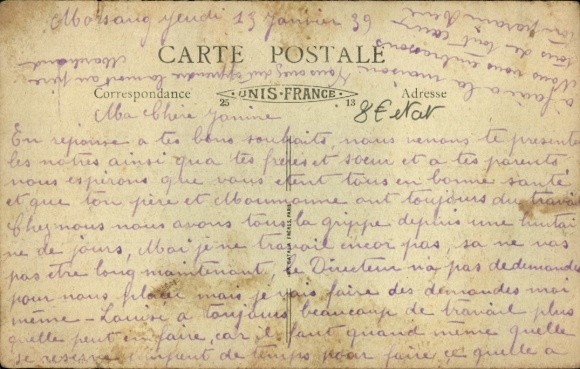 Morsang jeudi 13 Janvier 39
CARTE POSTALE
Correspondance
UNIS-FRANCE
25
13
Adresse
8E etat
Ma Chère Janine
En réponse a tes bons souhaits, nous venons te présenter
les notres ainsi qua tes frères et sœur et a tes parents
nous espirons que vous etent tous en bonne santé
et que ton père et Maumonne ont toujours du travail
Chez nous nous avons tous la grippe depuis une huitai
ne de jours, Moi je ne travail encor pas, sa ne vas
pas être long maintenant, le Directeur n'a pas de demandes
pour nous placer mais je vais faire des demandes moi
même - Louise a toujours beaucoup de travail plus
quelle peut en faire, car il faut quand même quelle
se réserve de temps pour faire ce quelle a
a faire a la maison
Nous vous embrassons
tous de tout cœur
ton parrain René
Vous avez du apprendre la mort au père
Marchand